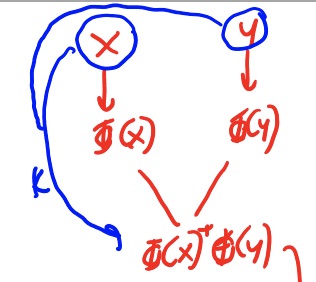 x y
Φ(x) Φ(y)
K
Φ(x)ᵀΦ(y)